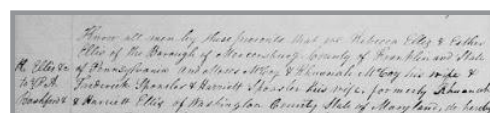 Know all men by these presents that we Rebecca Ellis & Esther
Ellis of the Borough of Mercersburg, County of Franklin and State
R. Ellis &c of Pennsylvania and Moses McCoy & Hannah McCoy his wife &
to Frederick Sponsler & Harriett Sponsler his wife, formerly Hannah
& Harriett Ellis of Washington County State of Maryland, do hereby